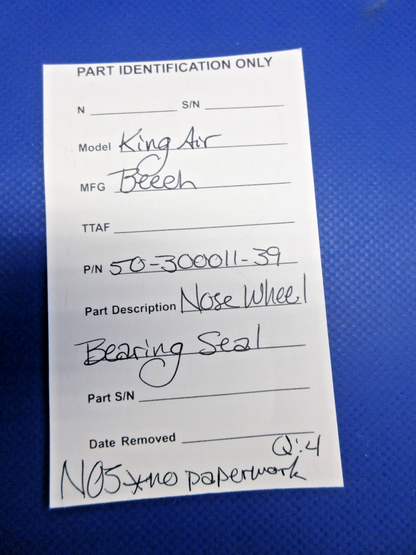 PART IDENTIFICATION ONLY
N S/N
Model King Air
MFG Beech
TTAF
P/N 50-300011-39
Part Description Nose Wheel
Bearing Seal
Part S/N
Date Removed
Q:4
NOS *no paperwork